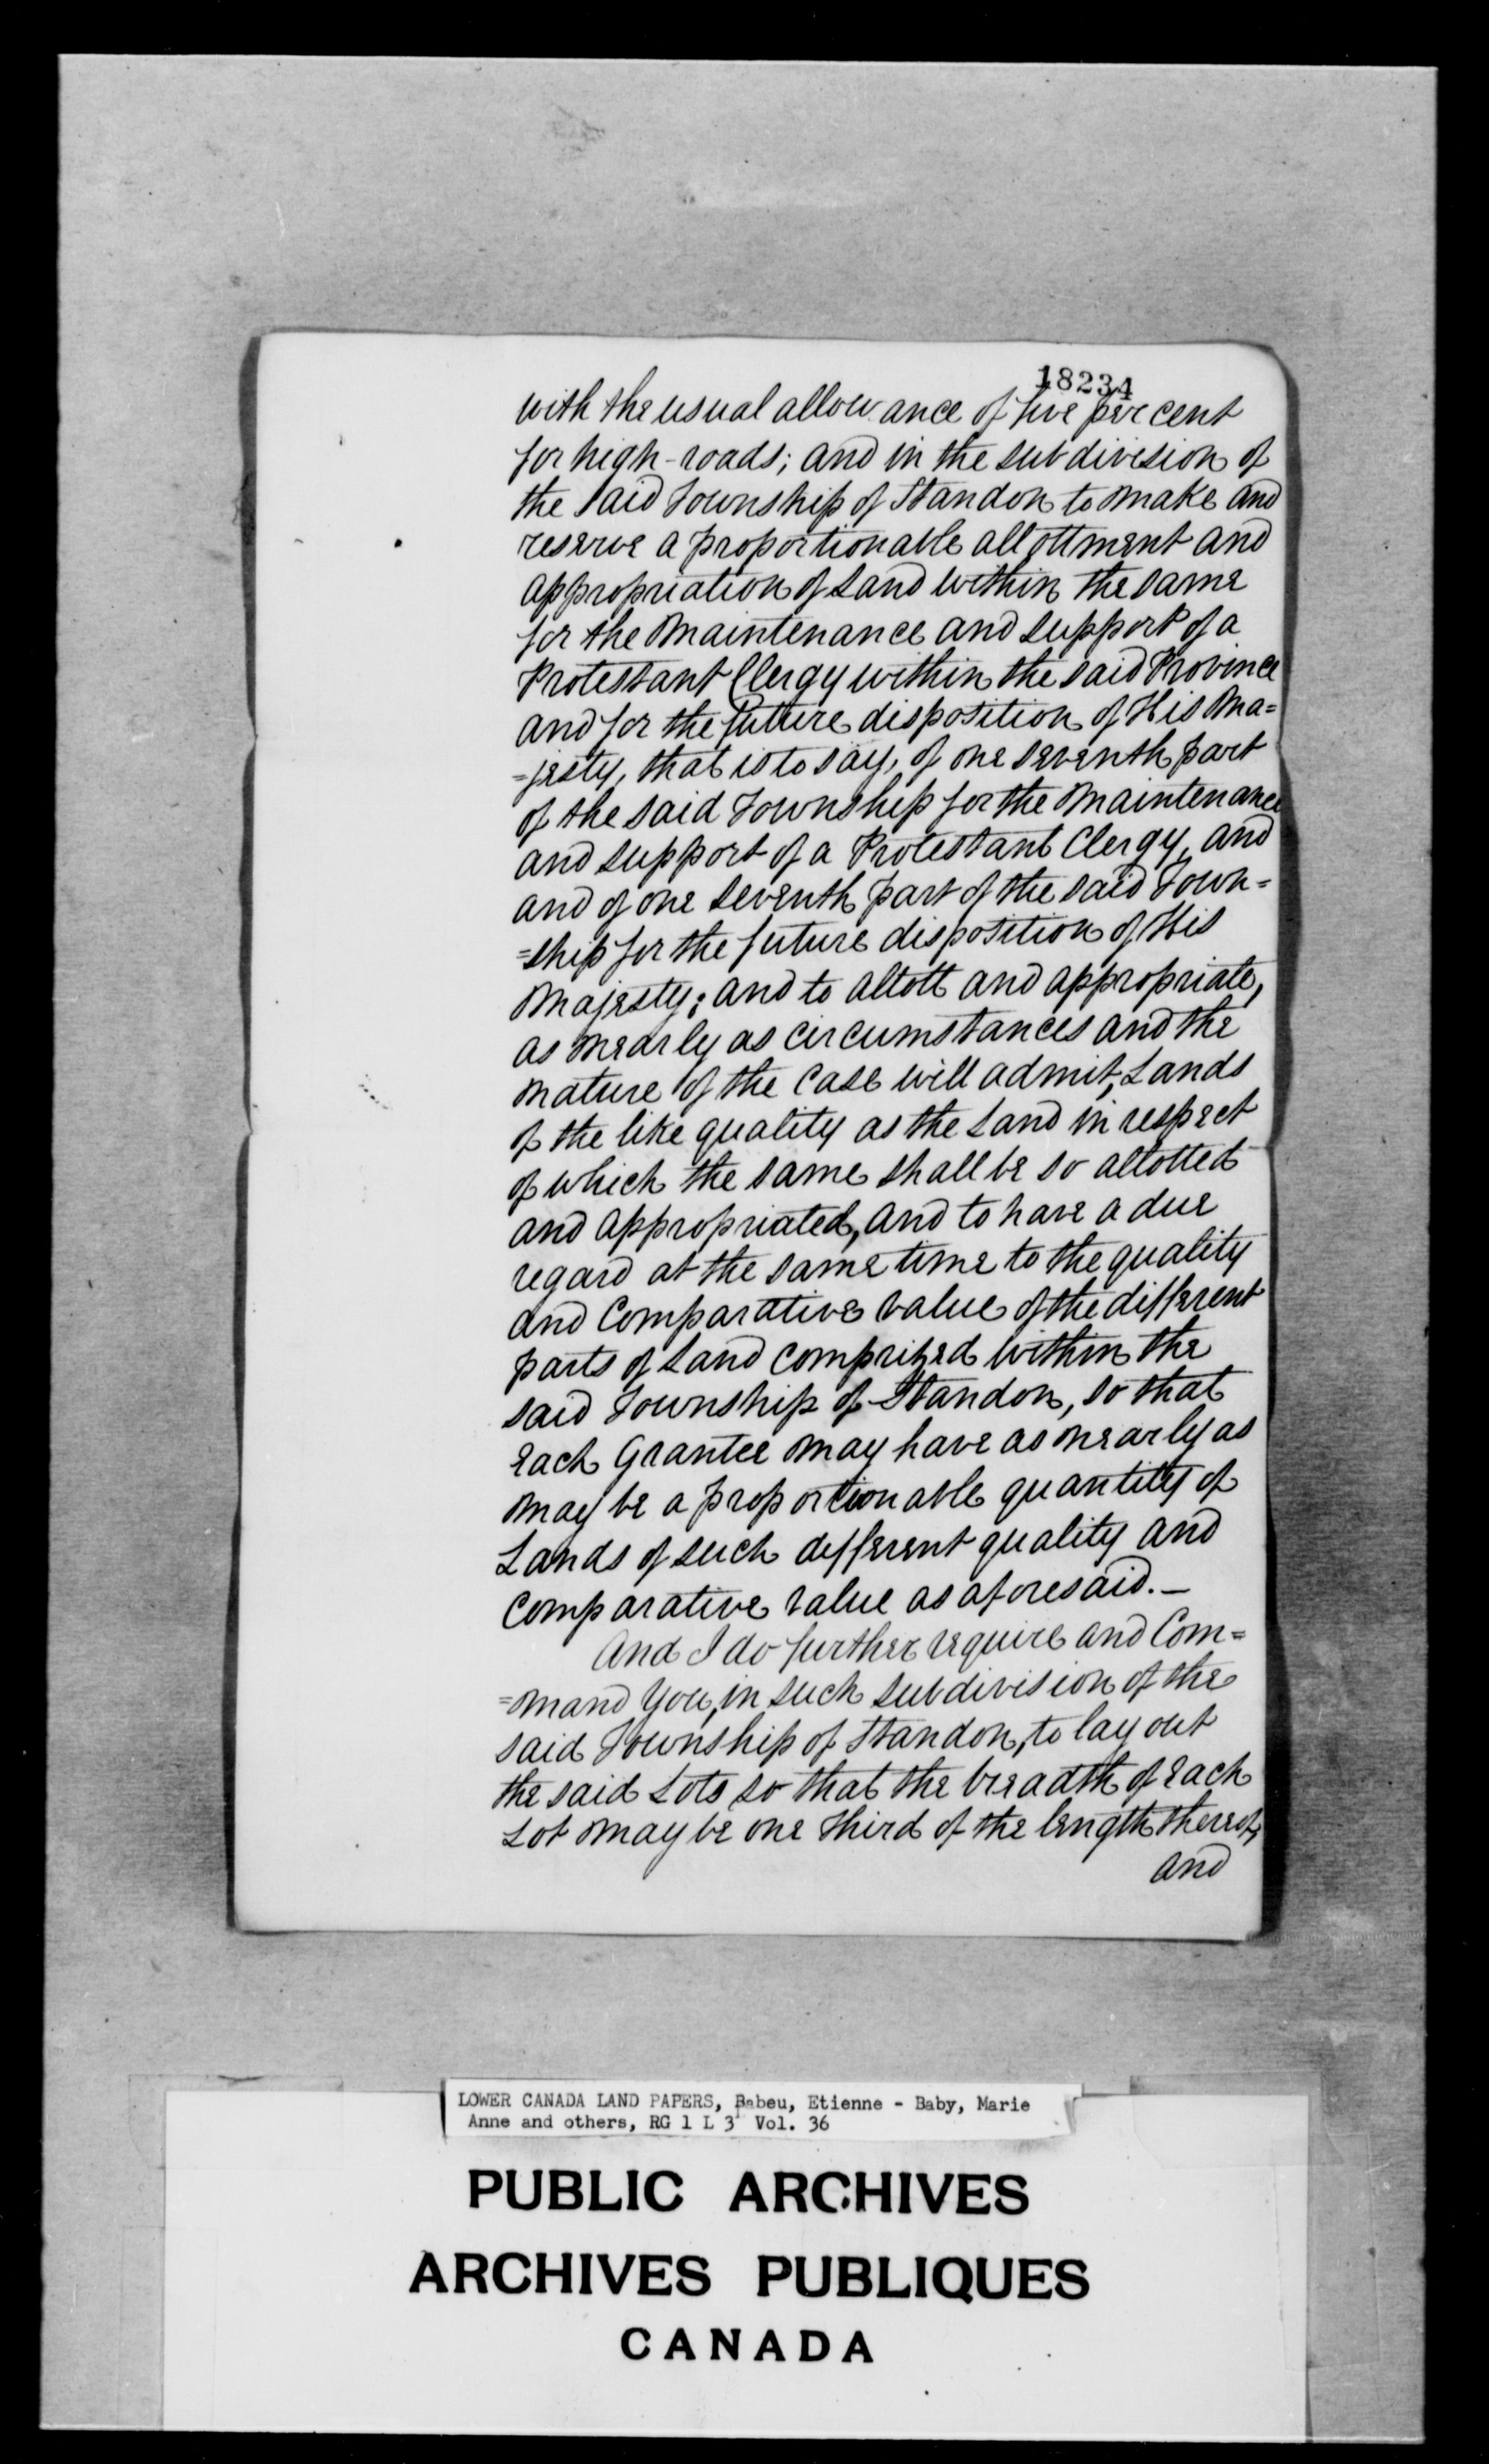 18234
with the usual allowance of five per cent
for high-roads; and in the subdivision of
the said Township of Standon to make and
reserve a proportionable allottment and
appropriation of Land within the same
for the Maintenance and support of a
Protestant Clergy within the said Province
and for the future disposition of His Ma=
=jesty, that is to say, of one seventh part
of the said Township for the Maintenance
and support of a Protestant Clergy, and
and of one seventh part of the said Town=
=ship for the future disposition of His
Majesty; and to allott and appropriate,
as nearly as circumstances and the
nature of the case will admit, Lands
of the like quality as the Land in respect
of which the same shall be so allotted
and appropriated, and to have a due
regard at the same time to the quality
and Comparative value of the different
parts of Land comprized within the
said Township of Standon, so that
each Grantee may have as nearly as
may be a proportionable quantity of
Lands of such different quality and
Comparative value as aforesaid. _
And I do further require and Com=
=mand You, in such subdivision of the
said Township of Standon, to lay out
the said Lots so that the breadth of each
Lot may be one third of the length thereof,
and
LOWER CANADA LAND PAPERS, Babeu, Etienne - Baby, Marie
Anne and others, RG 1 L 3 Vol. 36
PUBLIC ARCHIVES
ARCHIVES PUBLIQUES
CANADA